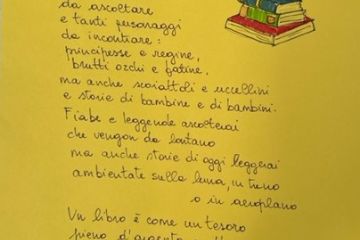 da ascoltare
e tanti personaggi
da incontrare:
principesse e regine,
brutti orchi e fatine,
ma anche scoiattoli e uccellini
e storie di bambine e di bambini.
Fiabe e leggende ascolterai
che vengon da lontano
ma anche storie di oggi leggerai
ambientate sulla luna, in treno
o in aeroplano
Un libro è come un tesoro
pieno d'argento